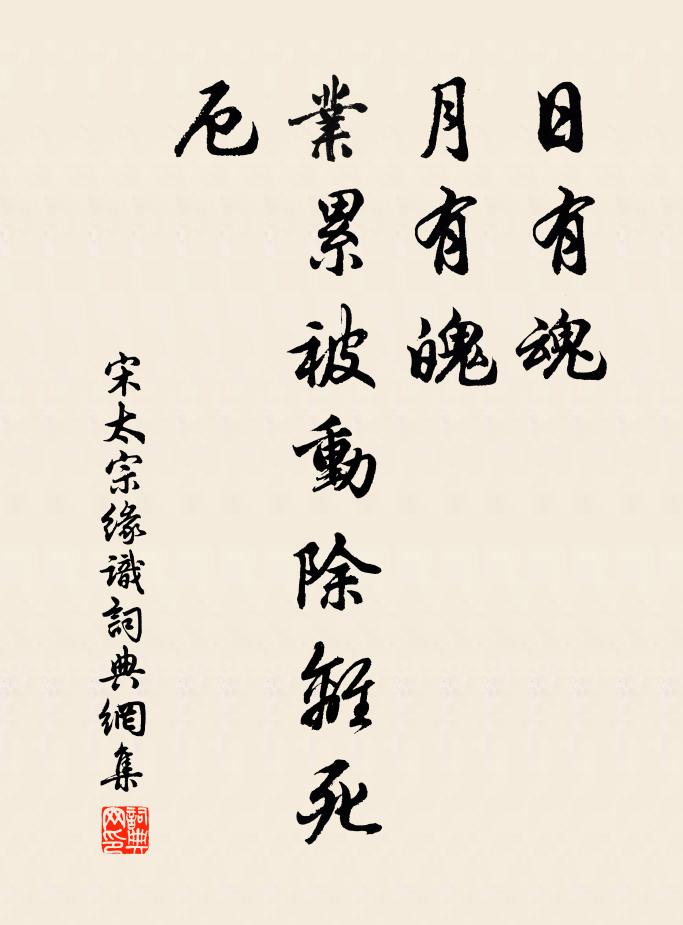 日有魂
月有魄
業累被動除離死
厄
宋太宗緣識詞典網集
詞典網印